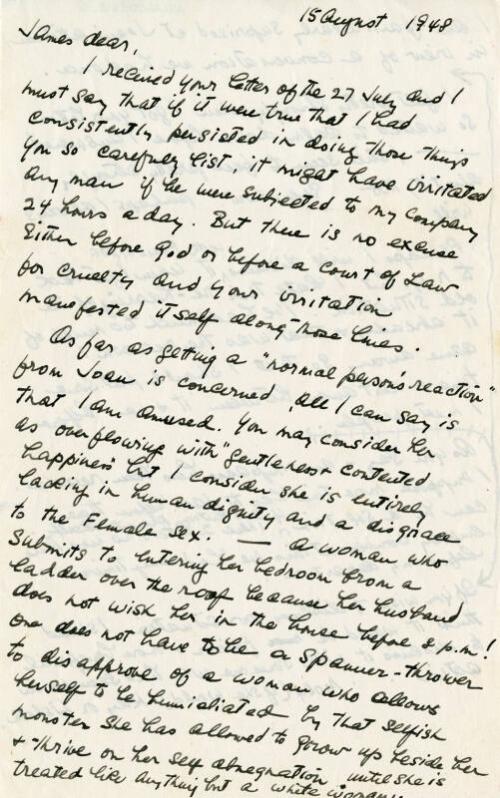 15 August 1948
James dear,
I received your letter of the 27 July and I
must say that if it were true that I had
consistently persisted in doing those things
you so carefully list, it might have irritated
any man if he were subjected to my company
24 hours a day. But there is no excuse
either before God or before a court of Law
for cruelty and your irritation
manifested itself along those lines.
As far as getting a "normal person's reaction"
from Joan is concerned, all I can say is
that I am amused. You may consider her
as overflowing with "gentleness & contented
happiness" but I consider she is entirely
lacking in human dignity and a disgrace
to the Female sex. — a woman who
submits to entering her bedroom from a
ladder over the roof because her husband
does not wish her in the house before 8 p.m.!
One does not have to be a spanner-thrower
to disapprove of a woman who allows
herself to be humialiated by that selfish
monster she has allowed to grow up beside her
& thrive on her self abnegation until she is
treated like anything but a white woman